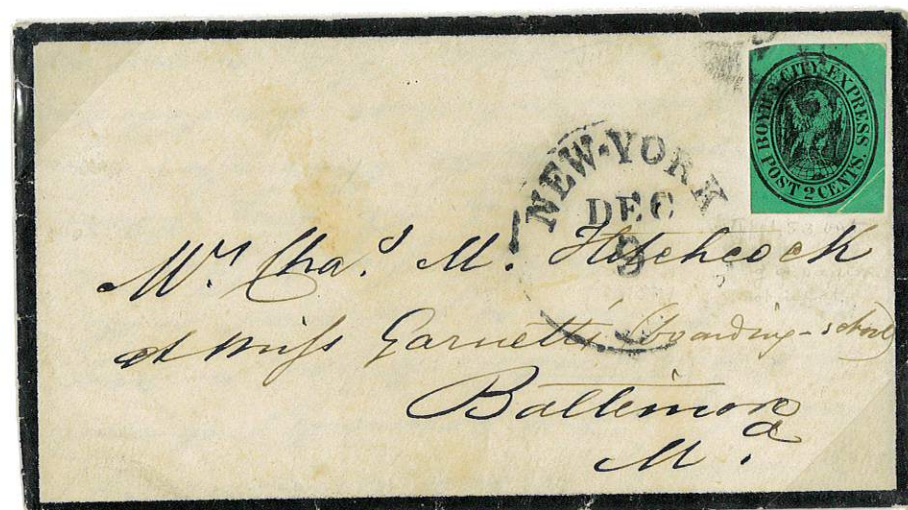 BOYD'S CITY EXPRESS
POST 2 CENTS.
NEW-YORK
DEC
Mrs Chas. M. Hitchcock
at Miss Garnett's (boarding-school)
Baltimore
Md.